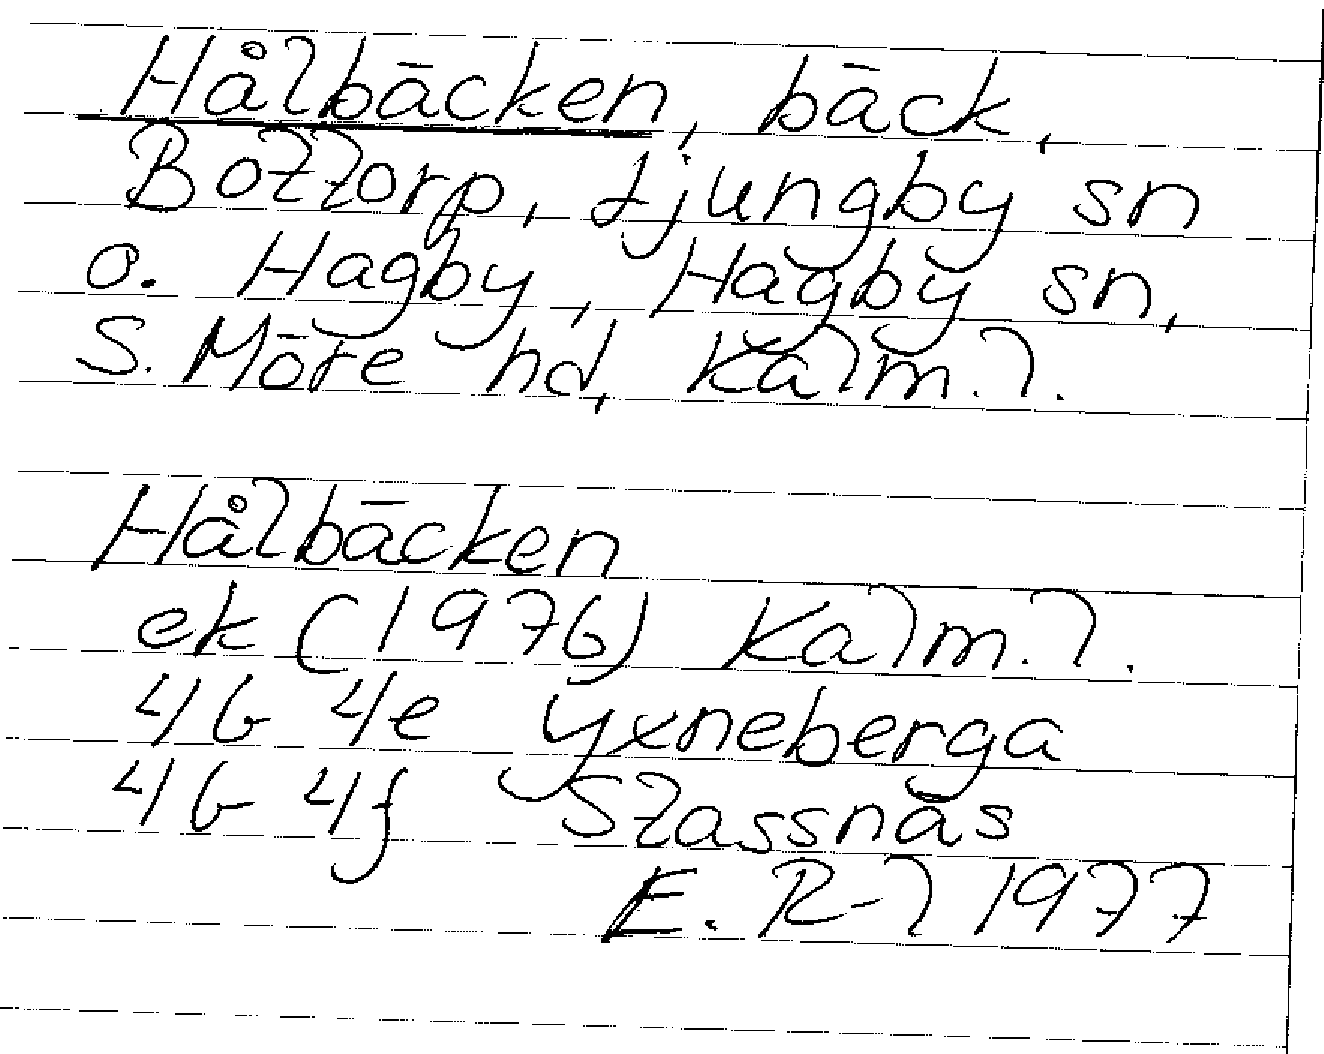 Hålbäcken, bäck,
Bottorp, Ljungby sn
o. Hagby, Hagby sn,
S. Möre hd, Kalm. l.
Hålbäcken
ek (1976) Kalm. l.
4G 4e Yxneberga
4G 4f Stassnäs
E. R-l 1977